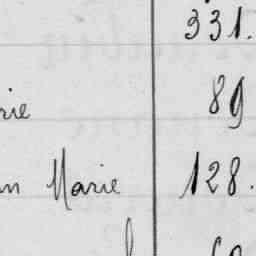 331.
rie 89
n Marie 128.